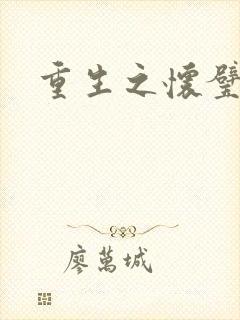 重生之懷璧
廖萬城